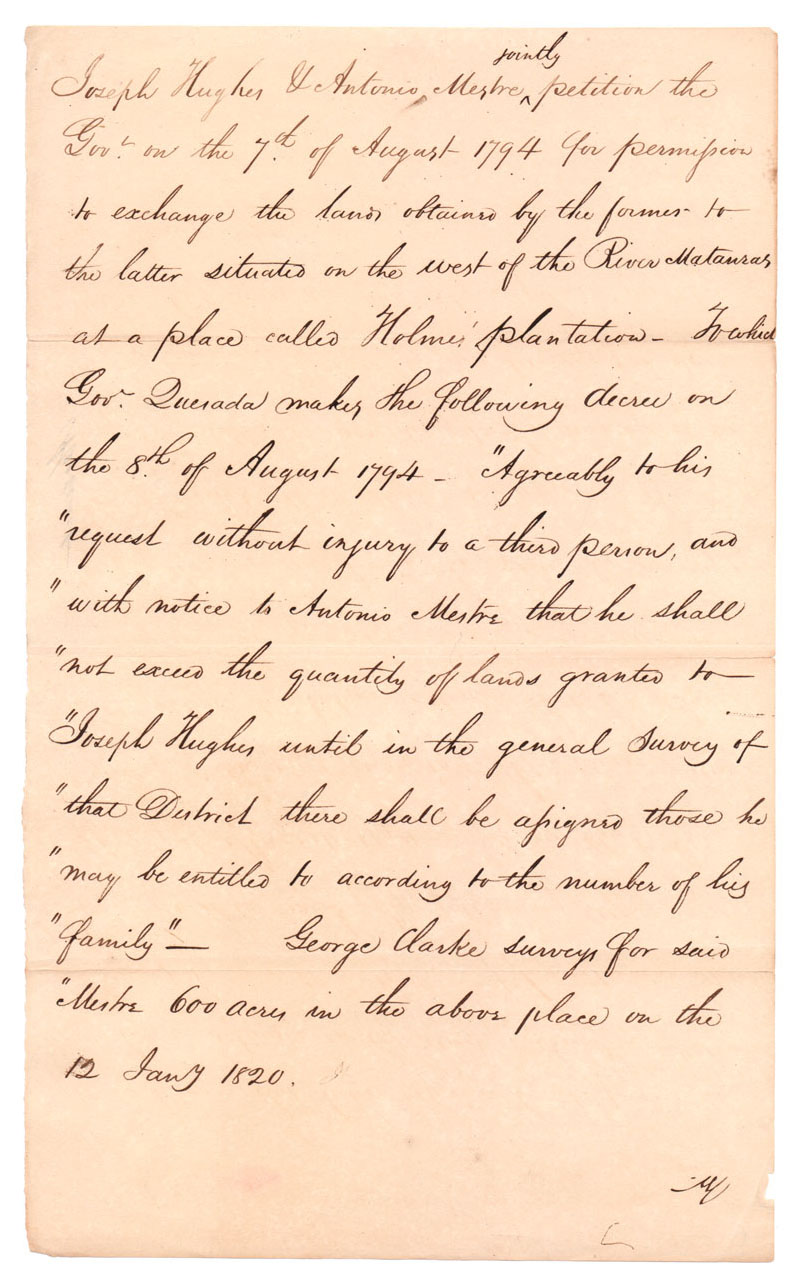 Joseph Hughes & Antonio Mestre, ^jointly petition the
Govr. on the 7th. of August 1794 for permission
to exchange the lands obtained by the former to
the latter situated on the west of the River Matanzas
at a place called Holmes' plantation - To which
Govr. Quesada makes the following decree on
the 8th. of August 1794 - "Agreeably to his
"request without injury to a third person, and
"with notice to Antonio Mestre that he shall
"not exceed the quantity of lands granted to
"Joseph Hughes until in the general Survey of
"that District there shall be assigned those he
"may be entitled to according to the number of his
"family" — George Clarke surveys for said
"Mestre 600 acres in the above place on the
12 Jany 1820.